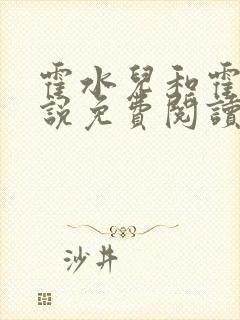 霍水兒和霍
說免費閱讀
沙井